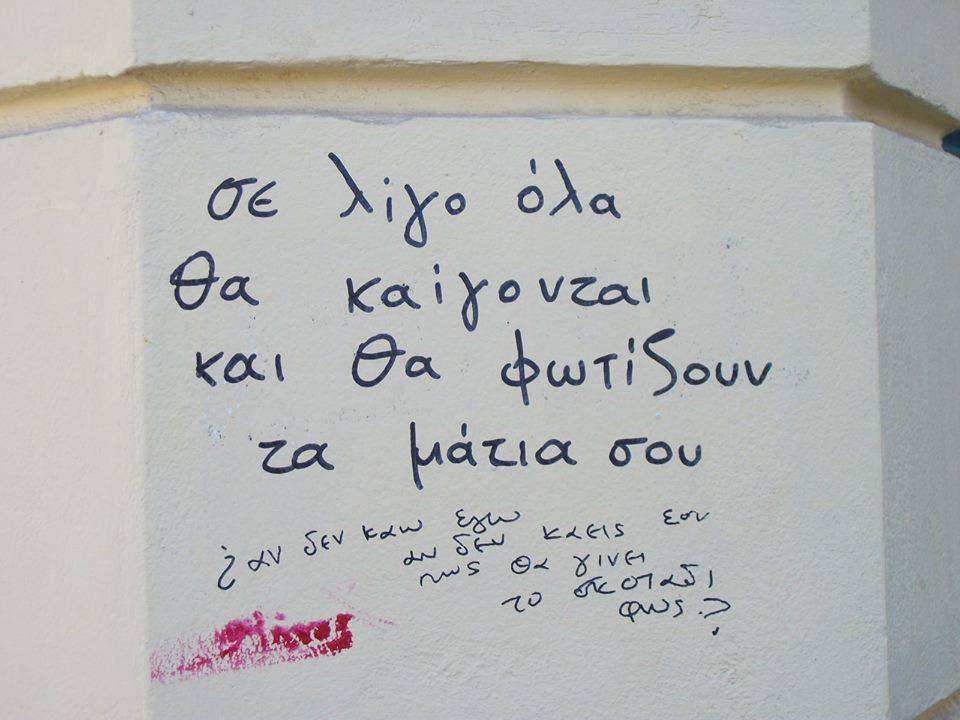 σε λίγο όλα
θα καίγονται
και θα φωτίζουν
τα μάτια σου
¿ αν δεν καω εγω
αν δεν καεις εσυ
πως θα γινει
το σκοταδι
φως?